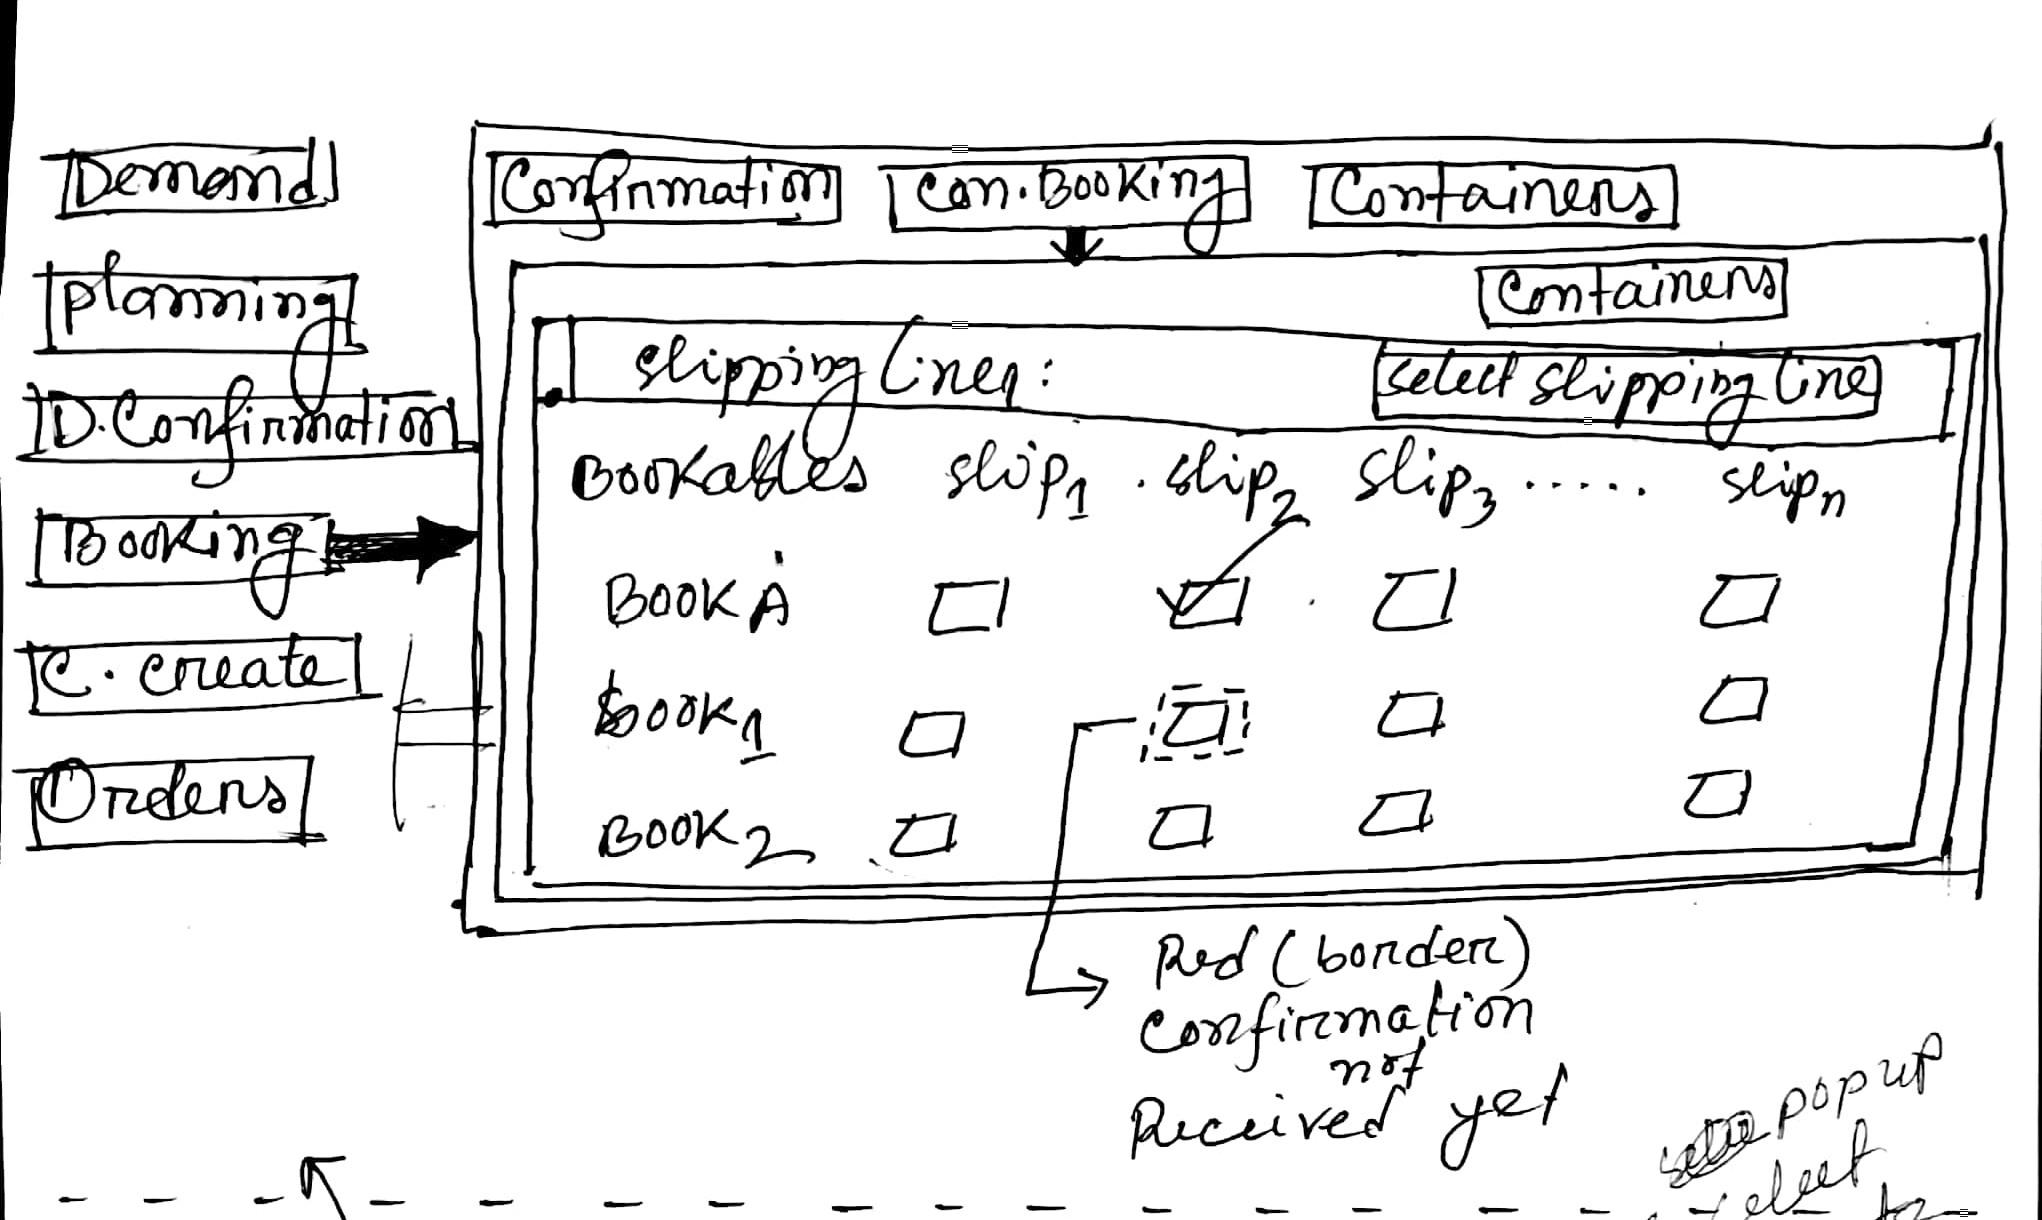 Demand
planning
D. Confirmation
Booking
C. create
Orders
Confirmation
Con. Booking
Containers
Containers
slipping liner:
select slipping line
Bookables slip1 . slip2 slip3 ..... slipn
BOOK A
Book1
BOOK2
Red (border)
Confirmation
not
Received yet
popup
select